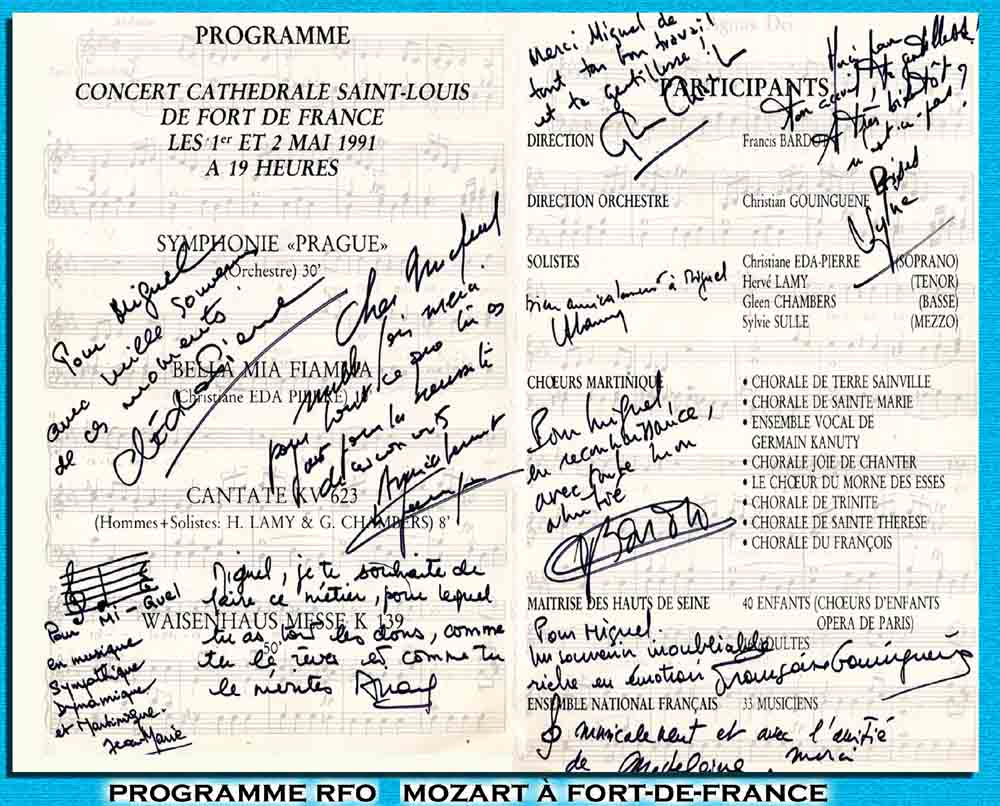 PROGRAMME
CONCERT CATHEDRALE SAINT-LOUIS
DE FORT DE FRANCE
LES 1er ET 2 MAI 1991
A 19 HEURES
SYMPHONIE «PRAGUE»
(Orchestre) 30'
Pour Miguel
mille souvenirs
avec
de ces moments!
Cher
merci
pour tout ce que tu as
BELLA MIA FIAMMA
(Christiane EDA PIERRE)
CANTATE KV 623
(Hommes+Solistes: H. LAMY & G. CHAMBERS) 8'
WAISENHAUS MESSE K 139
50'
Miguel, je te souhaite de
faire ce métier, pour lequel
tu as tous les dons, comme
tu le rêves et comme tu
le mérites
Pour Mi - Guel
en musique
sympathique
Dynamique
et Martinique.
Jean Marie
Agnus Dei
Merci Miguel de
tout ton bon travail
et ta gentillesse!
PARTICIPANTS
DIRECTION Francis BARDOT
DIRECTION ORCHESTRE Christian GOUINGUENE
A très bientôt
n'est-ce-pas?
Sylvie
SOLISTES Christiane EDA-PIERRE (SOPRANO)
Hervé LAMY (TENOR)
Gleen CHAMBERS (BASSE)
Sylvie SULLE (MEZZO)
bien amicalement à Miguel
HLamy
CHŒURS MARTINIQUE
• CHORALE DE TERRE SAINVILLE
• CHORALE DE SAINTE MARIE
• ENSEMBLE VOCAL DE
GERMAIN KANUTY
• CHORALE JOIE DE CHANTER
• LE CHŒUR DU MORNE DES ESSES
• CHORALE DE TRINITE
• CHORALE DE SAINTE THERESE
• CHORALE DU FRANÇOIS
Pour Miguel
en reconnaissance,
avec toute mon
amitié
Bardot
MAITRISE DES HAUTS DE SEINE 40 ENFANTS (CHŒURS D'ENFANTS
OPERA DE PARIS)
ADULTES
Pour Miguel.
Un souvenir inoubliable
riche en émotion
ENSEMBLE NATIONAL FRANÇAIS 33 MUSICIENS
musicalement et avec l'amitié
de Madeleine, merci
PROGRAMME RFO MOZART À FORT-DE-FRANCE